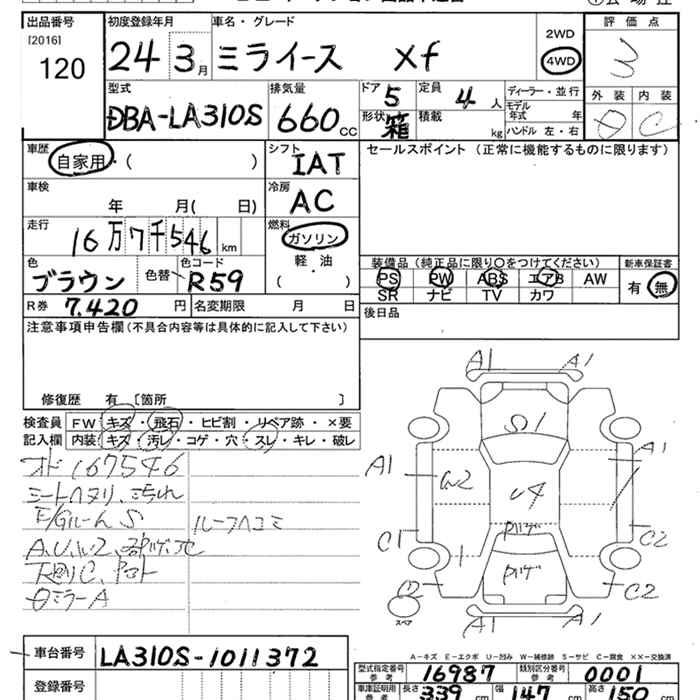 出品番号 初度登録年月 車名・グレード 2WD 評価点
[2016] 120 24 3月 ミライース Xf 4WD 3
型式 排気量 ドア 5 定員 4人 ディーラー・並行 外装 内装
DBA-LA310S 660cc 形状 箱 積載 kg モデル年式 年 C
ハンドル 左・右
車歴 シフト セールスポイント (正常に機能するものに限ります)
自家用・( ) IAT
車検 冷房
年 月( 日) AC
走行 燃料
16万7千546km ガソリン
色 色替 色コード 軽・油 装備品 (純正品に限り○をつけてください) 新車保証書
ブラウン R59 ( ) PS PW ABS エアB AW 有・無
SR ナビ TV カワ
R券 7.420円 名変期限 月 日 後日品
注意事項申告欄(不具合内容等は具体的に記入して下さい)
修復歴 有 [箇所 ]
検査員 FW・キズ・飛石・ヒビ割・リペア跡・×要
記入欄 内装・キズ・汚レ・コゲ・穴・スレ・キレ・破レ
オド 167546
シートヘタリ、汚れ
E/Gルーム S ルーフヘコミ
下廻りC
ミラーA
A1 A1
S1
A1 A1
W2 U4
C1 C2
C2
スペア
A1 A1
A-キズ E-エクボ U-凹み W-補修跡 S-サビ C-腐食 ××-交換済
車台番号 LA310S-1011372
登録番号
型式指定番号 参考 16987 類別区分番号 参考 0001
車庫証明用 参考 長さ 339cm 幅 147cm 高さ 150cm